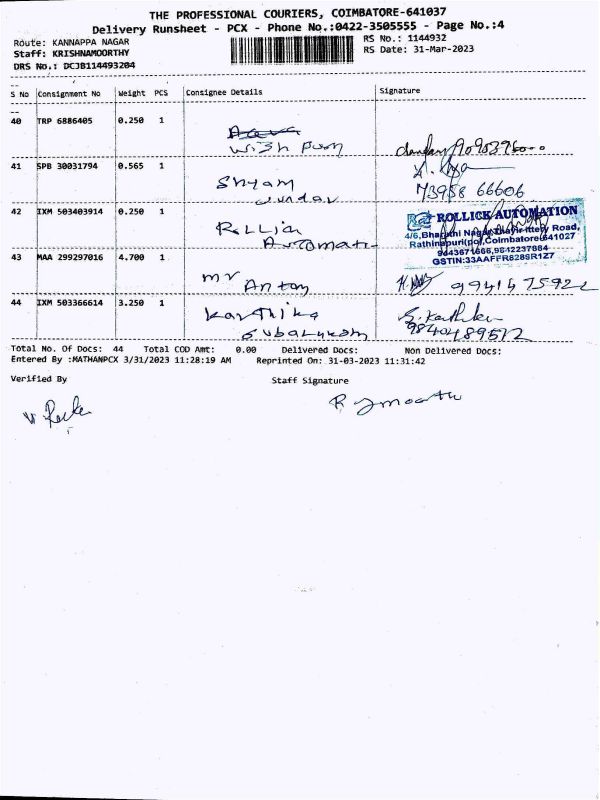 THE PROFESSIONAL COURIERS, COIMBATORE-641037
Delivery Runsheet - PCX - Phone No.:0422-3505555 - Page No.:4
Route: KANNAPPA NAGAR
RS No.: 1144932
Staff: KRISHNAMOORTHY
RS Date: 31-Mar-2023
DRS No.: DCJB114493204
S No Consignment No Weight PCS Consignee Details Signature
40 TRP 6886405 0.250 1
wish pum
41 SPB 30031794 0.565 1
Shyam
sundar
73958 66606
42 IXM 503403914 0.250 1
Rollia
Automati
ROLLICK AUTOMATION
4/6, Bharathi Nagar, Road,
Rathinapuri(po), Coimbatore-641027
9843671666, 9842237864
GSTIN:33AAFFR8289R1Z7
43 MAA 299297016 4.700 1
mr
Antony
44 IXM 503366614 3.250 1
Karthika
S. Karthika
9840489512
Total No. Of Docs: 44 Total COD Amt: 0.00 Delivered Docs: Non Delivered Docs:
Entered By :MATHANPCX 3/31/2023 11:28:19 AM Reprinted On: 31-03-2023 11:31:42
Verified By Staff Signature